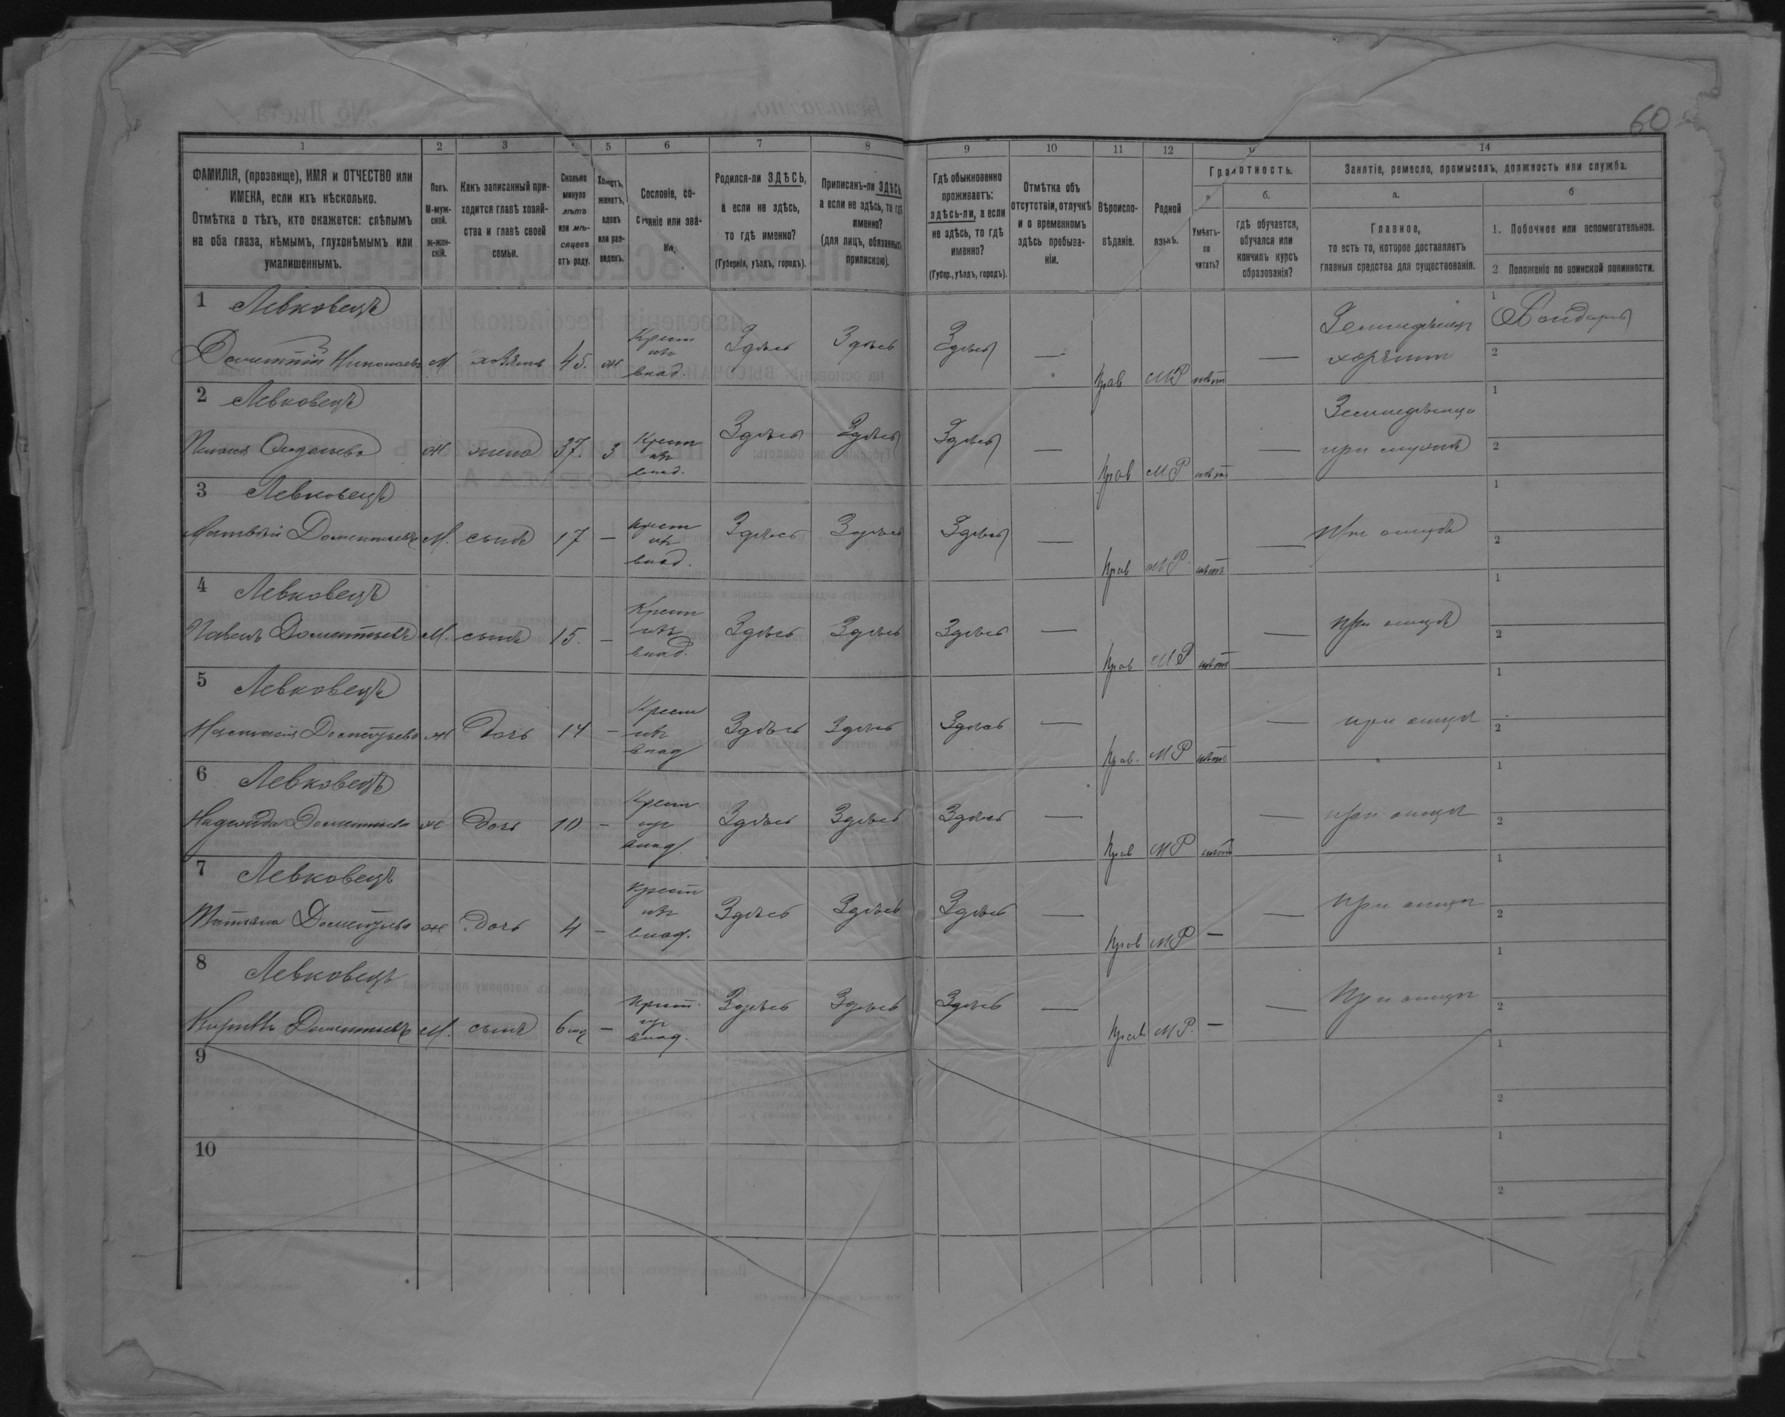 60
1 2 3 5 6 7 8 9 10 11 12 14
ФАМИЛІЯ, (прозвище), ИМЯ и ОТЧЕСТВО или
ИМЕНА, если ихъ нѣсколько.
Отмѣтка о тѣхъ, кто окажется: слѣпымъ
на оба глаза, нѣмымъ, глухонѣмымъ или
умалишеннымъ.
Полъ.
М-муж-
ской.
ж-жен-
скій.
Какъ записанный при-
ходится главѣ хозяй-
ства и главѣ своей
семьи.
Сколько
минуло
лѣтъ
или мѣ-
сяцевъ
отъ роду.
Холостъ,
женатъ,
вдовъ
или раз-
веденъ.
Сословіе, со-
стояніе или зва-
ніе.
Родился-ли ЗДѢСЬ,
а если не здѣсь,
то гдѣ именно?
(Губернія, уѣздъ, городъ).
Приписанъ-ли ЗДѢСЬ,
а если не здѣсь, то гдѣ
именно?
(для лицъ, обязанныхъ
припискою).
Гдѣ обыкновенно
проживаетъ:
здѣсь-ли, а если
не здѣсь, то гдѣ
именно?
(Губер., уѣзд., городъ).
Отмѣтка объ
отсутствіи, отлучкѣ
и о временномъ
здѣсь пребыва-
ніи.
Вѣроиспо-
вѣданіе.
Родной
языкъ.
Грамотность.
Умѣетъ-
ли
читать?
б.
гдѣ обучается,
обучался или
кончилъ курсъ
образованія?
Занятіе, ремесло, промыселъ, должность или служба.
а.
Главное,
то есть то, которое доставляетъ
главныя средства для существованія.
б
1. Побочное или вспомогательное.
2 Положеніе по воинской повинности.
1 Левковецъ
Дометій Николаевъ М хозяинъ 45. ж Крест изъ влад. Здѣсь Здѣсь Здѣсь — Прав МР нѣтъ — Земледѣлецъ 1 Бондарь
2
2 Левковецъ
ж жена 37. З Крест изъ влад. Здѣсь Здѣсь Здѣсь — Прав МР нѣтъ — при мужѣ 1
2
3 Левковецъ
Матвѣй Дометіевъ М. сынъ 17 — Крест изъ влад. Здѣсь Здѣсь Здѣсь — Прав МР нѣтъ — При отцѣ 1
2
4 Левковецъ
Павелъ Дометіевъ М. сынъ 15. — Крест изъ влад. Здѣсь Здѣсь Здѣсь — Прав МР нѣтъ — При отцѣ 1
2
5 Левковецъ
Дометіева ж Дочь 14 — Крест изъ влад Здѣсь Здѣсь Здѣсь — Прав. МР нѣтъ — при отцѣ 1
2
6 Левковецъ
Надежда Дометіева ж Дочь 10 — Крест изъ влад. Здѣсь Здѣсь Здѣсь — Прав МР нѣтъ — при отцѣ 1
2
7 Левковецъ
Татьяна Дометіева ж Дочь 4 — Крест изъ влад. Здѣсь Здѣсь Здѣсь — Прав МР — — При отцѣ 1
2
8 Левковецъ
Дометіевъ М. сынъ 6 мц — Крест. изъ влад. Здѣсь Здѣсь Здѣсь — Прав МР. — — При отцѣ 1
2
9 1
2
10 1
2